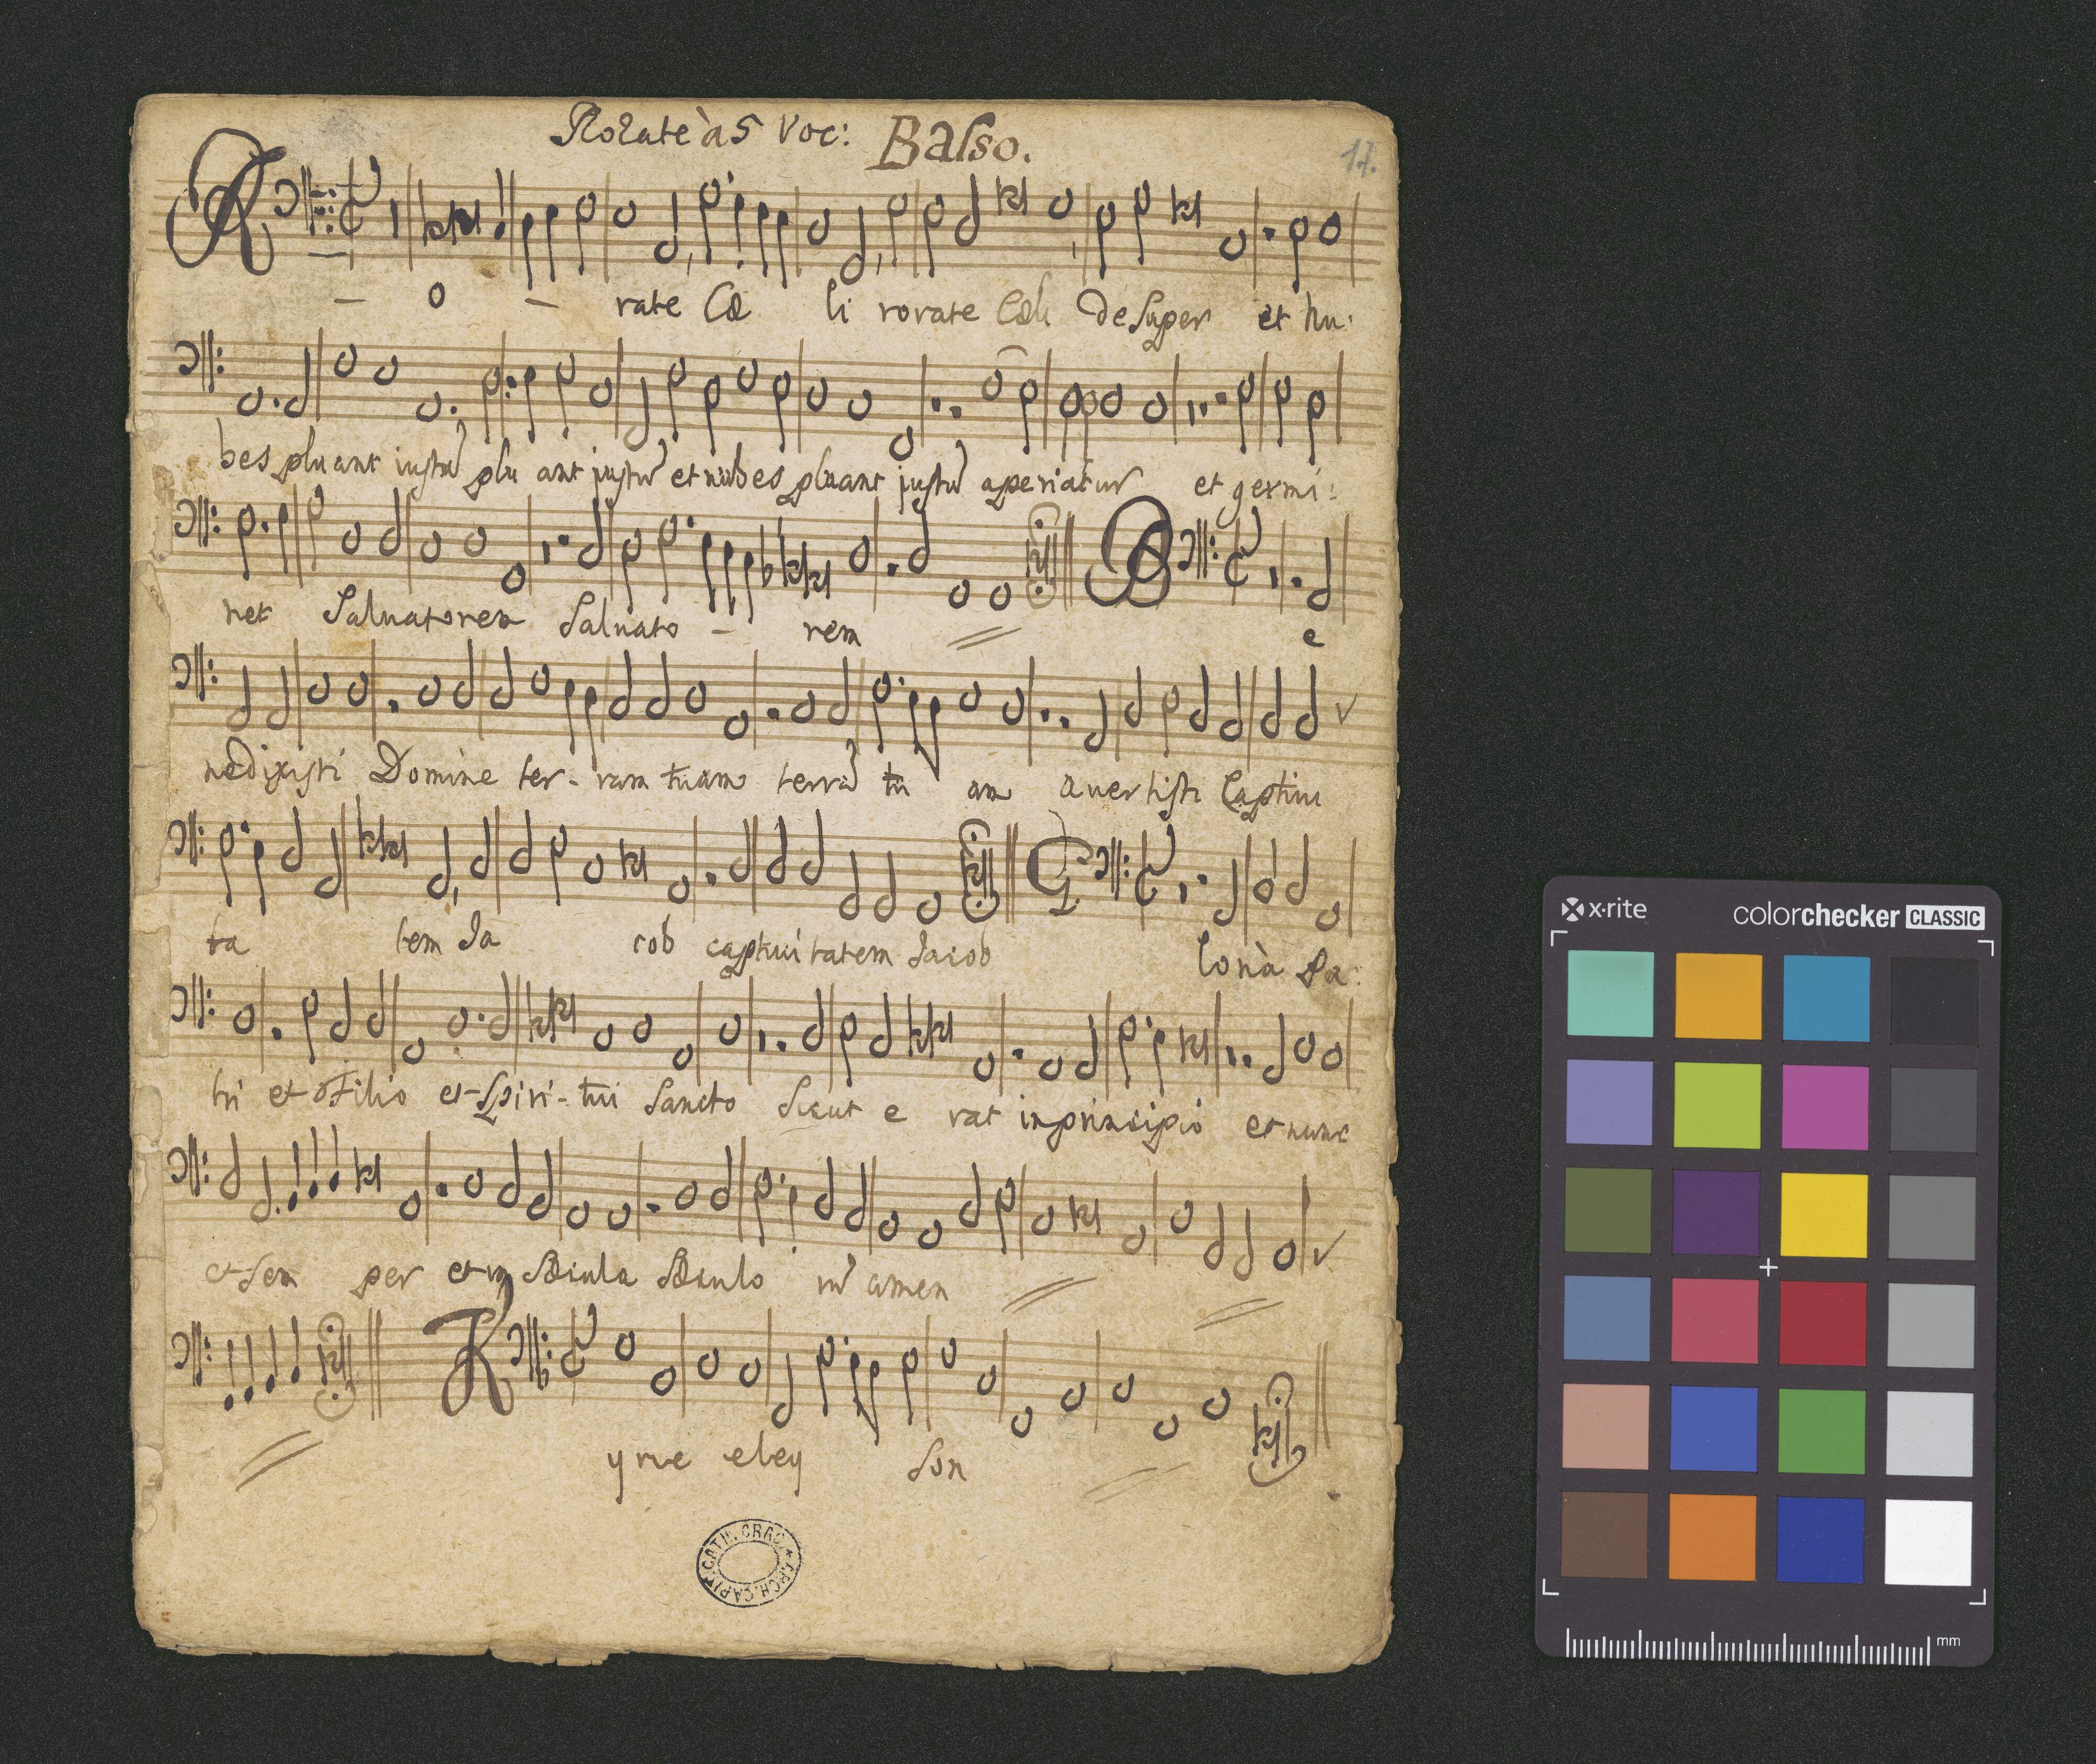 Rorate à 5 Voc: Basso.
17.
R - o - rate Cæ li rorate Cæli desuper et nu:
bes pluant iustũ plu ant justũ et nubes pluant justũ aperiatur et germi:
net Saluatorem Saluato - rem B e
nedixisti Domine ter - ram tuam terrã tu am auertisti Captiui
ta tem Ja cob captiuitatem Jacob G loria Pa:
tri et Filio et Spiri - tui Sancto Sicut e rat in principio et nunc
et sem per et in Sæcula Sæculo rũ amen
K yrie eley son
ARCH. CAPIT. CATH. CRAC.
x-rite
colorchecker CLASSIC
mm